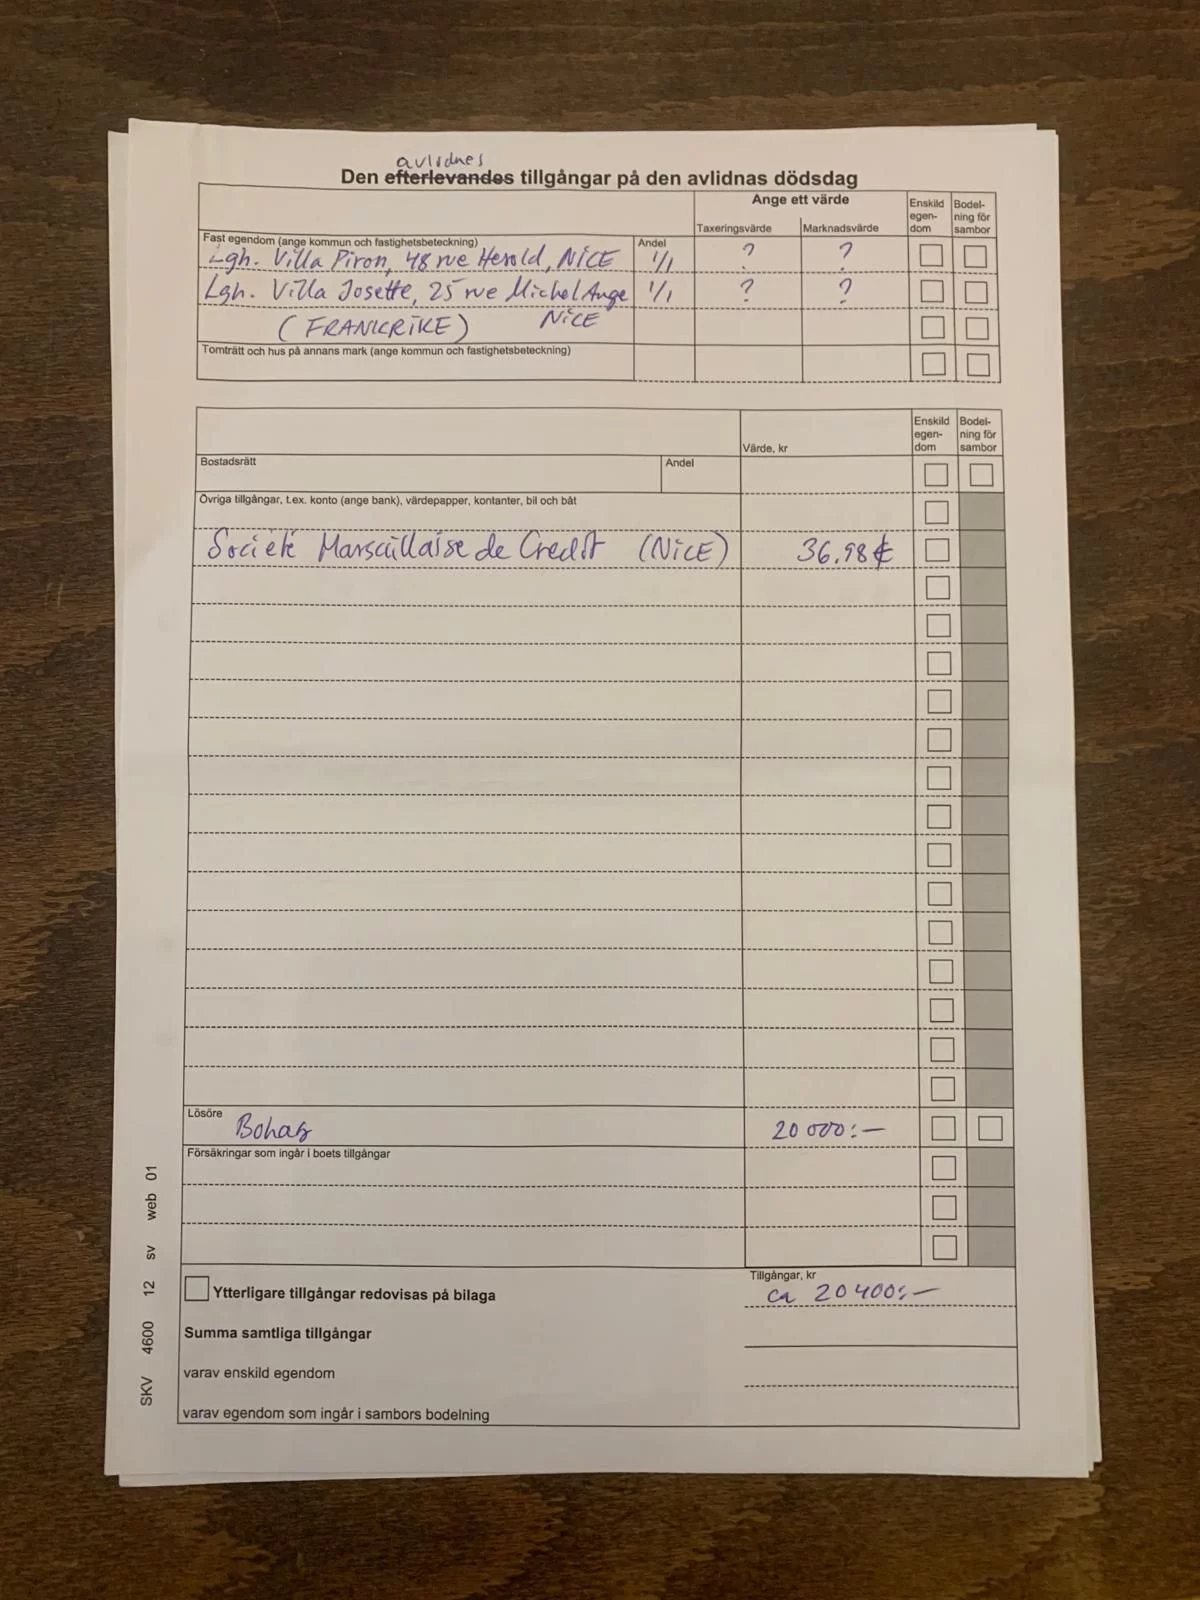 avlidnes
Den efterlevandes tillgångar på den avlidnas dödsdag
Ange ett värde
Taxeringsvärde
Marknadsvärde
Enskild egen-dom
Bodel-ning för sambor
Fast egendom (ange kommun och fastighetsbeteckning)
Andel
Lgh. Villa Piron, 48 rue Herold, NiCE 1/1 ? ?
Lgh. Villa Josette, 25 rue Michel Ange 1/1 ? ?
(FRANKRiKE) NiCE
Tomträtt och hus på annans mark (ange kommun och fastighetsbeteckning)
Värde, kr
Enskild egen-dom
Bodel-ning för sambor
Bostadsrätt
Andel
Övriga tillgångar, t.ex. konto (ange bank), värdepapper, kontanter, bil och båt
Societé Marseillaise de Credit (NiCE) 36,98 €
Lösöre
Bohag 20 000:-
Försäkringar som ingår i boets tillgångar
Tillgångar, kr
Ytterligare tillgångar redovisas på bilaga
ca 20 400:-
Summa samtliga tillgångar
varav enskild egendom
varav egendom som ingår i sambors bodelning
SKV 4600 12 sv web 01